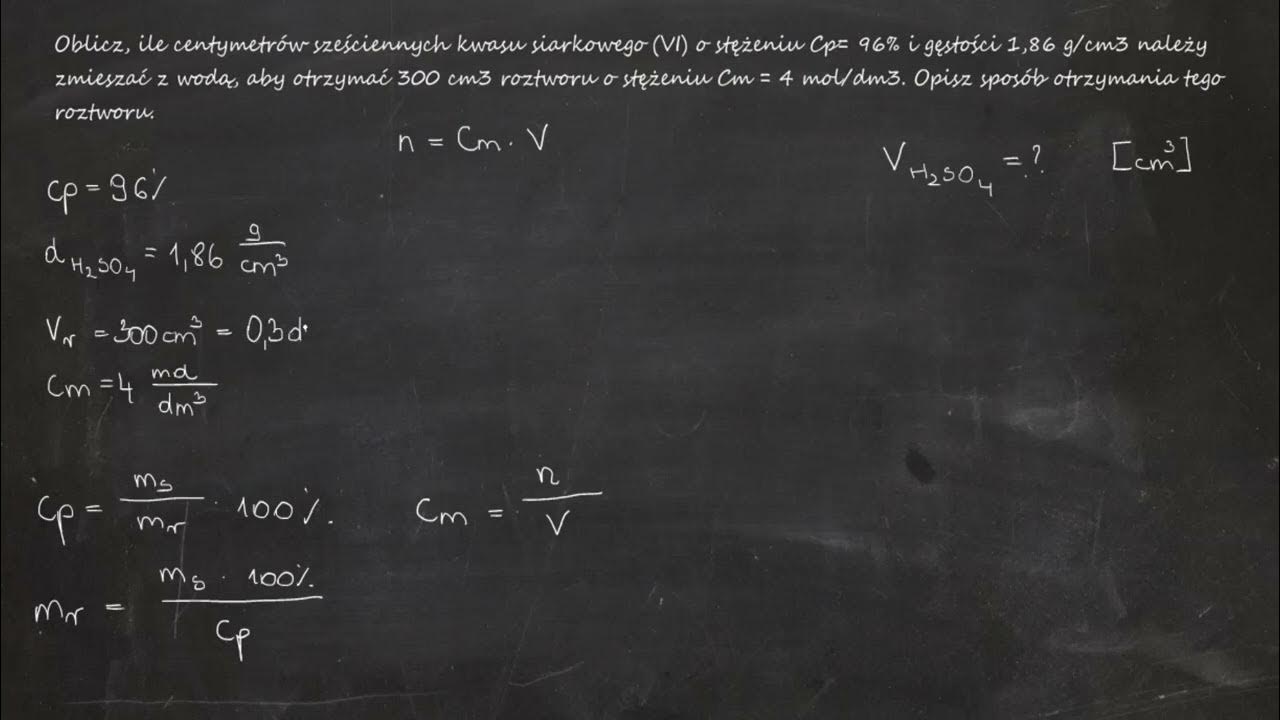 Oblicz, ile centymetrów sześciennych kwasu siarkowego (VI) o stężeniu Cp= 96% i gęstości 1,86 g/cm3 należy
zmieszać z wodą, aby otrzymać 300 cm3 roztworu o stężeniu Cm = 4 mol/dm3. Opisz sposób otrzymania tego
roztworu.
n = Cm · V
V H₂SO₄ = ? [cm³]
Cp = 96%
d H₂SO₄ = 1,86 g/cm³
Vr = 300 cm³ = 0,3 d
Cm = 4 mol/dm³
Cp = ms/mr · 100%.
Cm = n/V
mr = ms · 100%/Cp